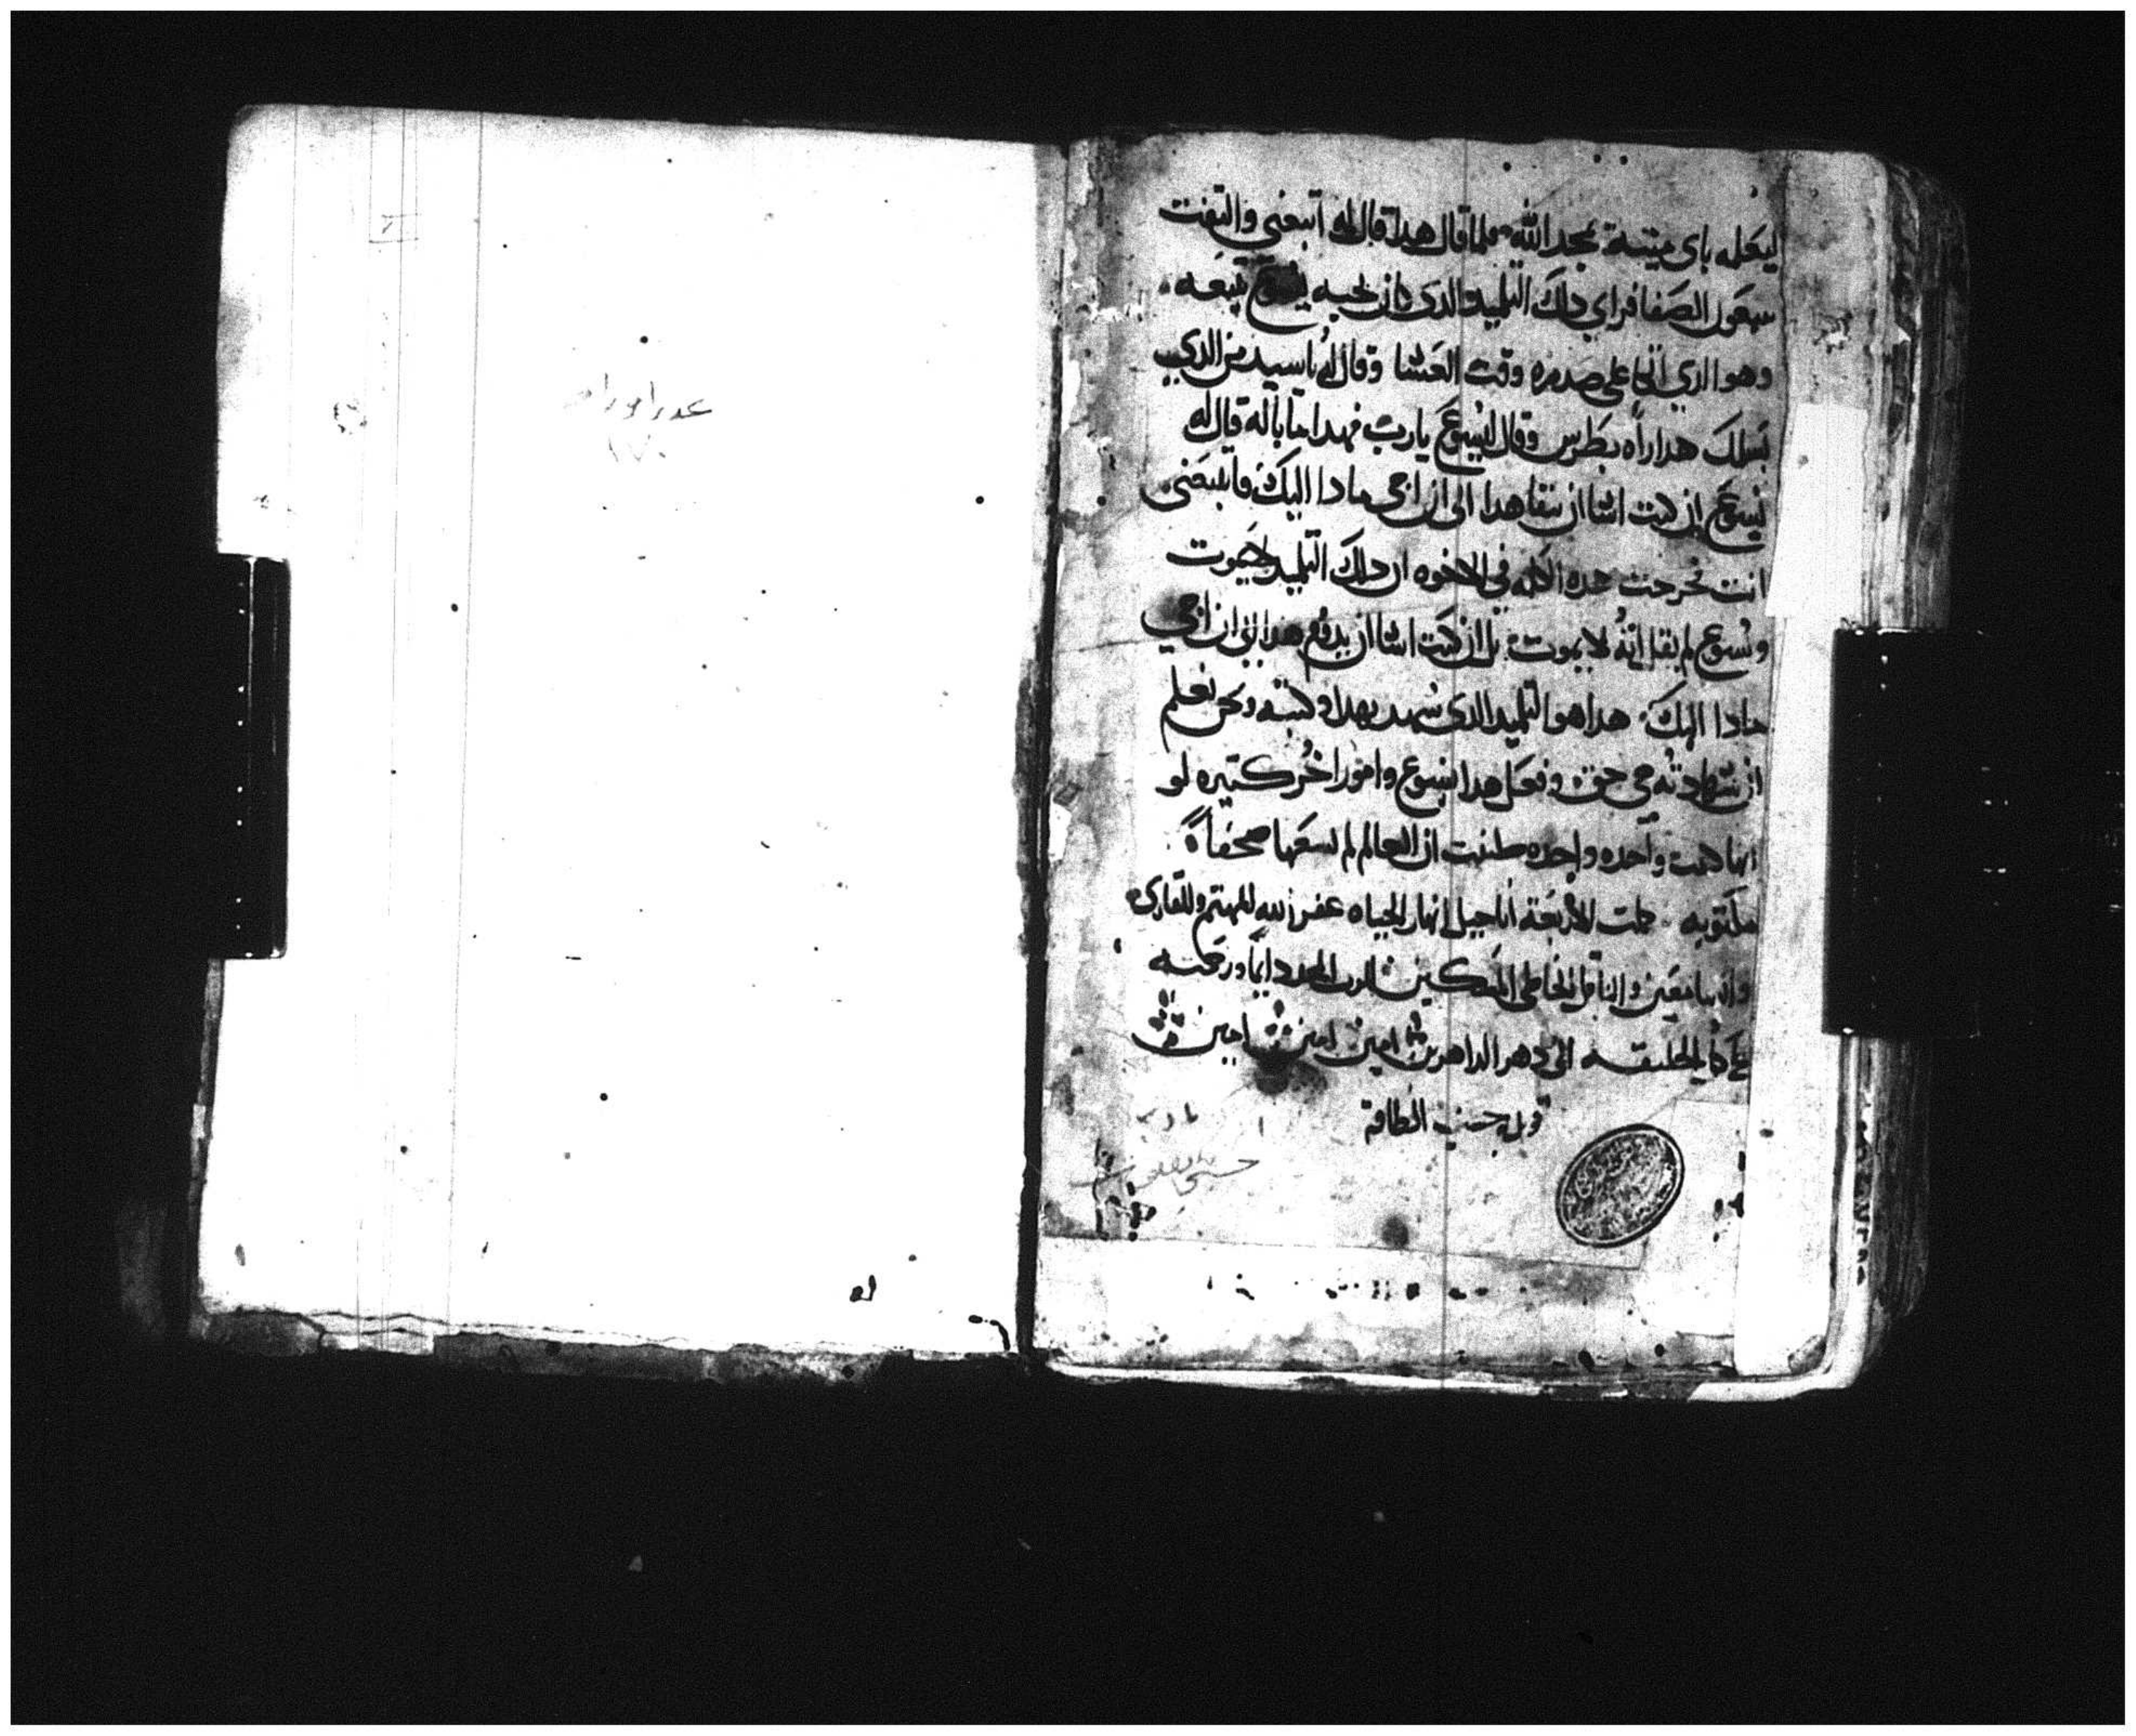 ليعلمه باى ميتة يمجد الله فلما قال هدا قال له اتبعني والتفت
سمعون الصفا فراي دلك التلميد الدى كان يحبه يسوع يتبعه
وهوا الدي اتكا على صدره وقت العشا وقال له يا سيد من الدي
يسلمك هدا راه بطرس وقال ليسوع يا رب فهدا ما باله قال له
يسوع ان كنت اشا ان يبقا هدا الى ان اجى مادا اليك فاتبعنى
انت فخرجت هده الكلمه في الاخوه ان دلك التلميد لا يموت
ويسوع لم يقل انه لا يموت بل ان كنت اشا ان هدا الى ان اجي
مادا اليك هدا هوا التلميد الدى شهد بهدا وكتبه ونحن نعلم
ان شهادته هي حق وفعل هدا يسوع وامورا اخر كتيره لو
انها كتبت واحده واحده طننت ان العالم لم يسعها صحفاً
مكتوبه كملت الاربعة اناجيل انهار الحياه غفر الله للمهتم وللقارى
والسامعين والناقل الخاطى المسكين المجد دايماً ورحمته
على كل الخليقه الى دهر الداهرين امين امين امين
قوبل حسب الطاقة
عدد اوراقه
١٧٠